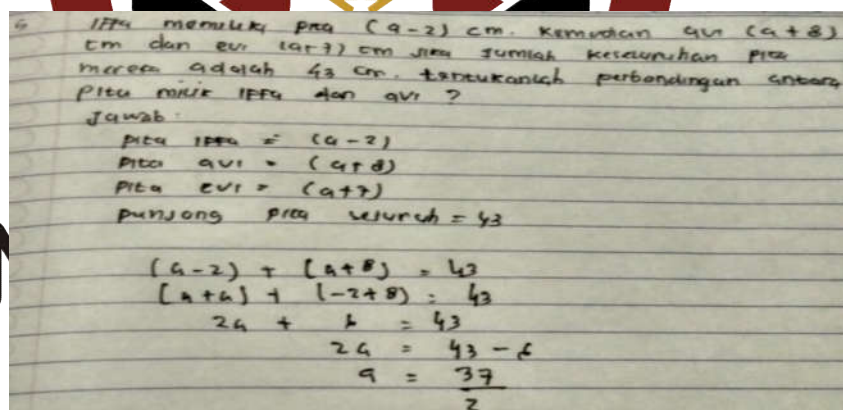 5 IFFa memiliki pita (a-2) cm. Kemudian avi (a+8)
cm dan evi (a+7) cm jika jumlah keseluruhan pita
mereka adalah 43 cm. tentukanlah perbandingan antara
pita milik IFFa dan avi ?
Jawab :
pita IFFa = (a-2)
pita avi = (a+8)
pita evi = (a+7)
panjang pita seluruh = 43
(a-2) + (a+8) = 43
(a+a) + (-2+8) = 43
2a + 6 = 43
2a = 43 - 6
a = 37
2